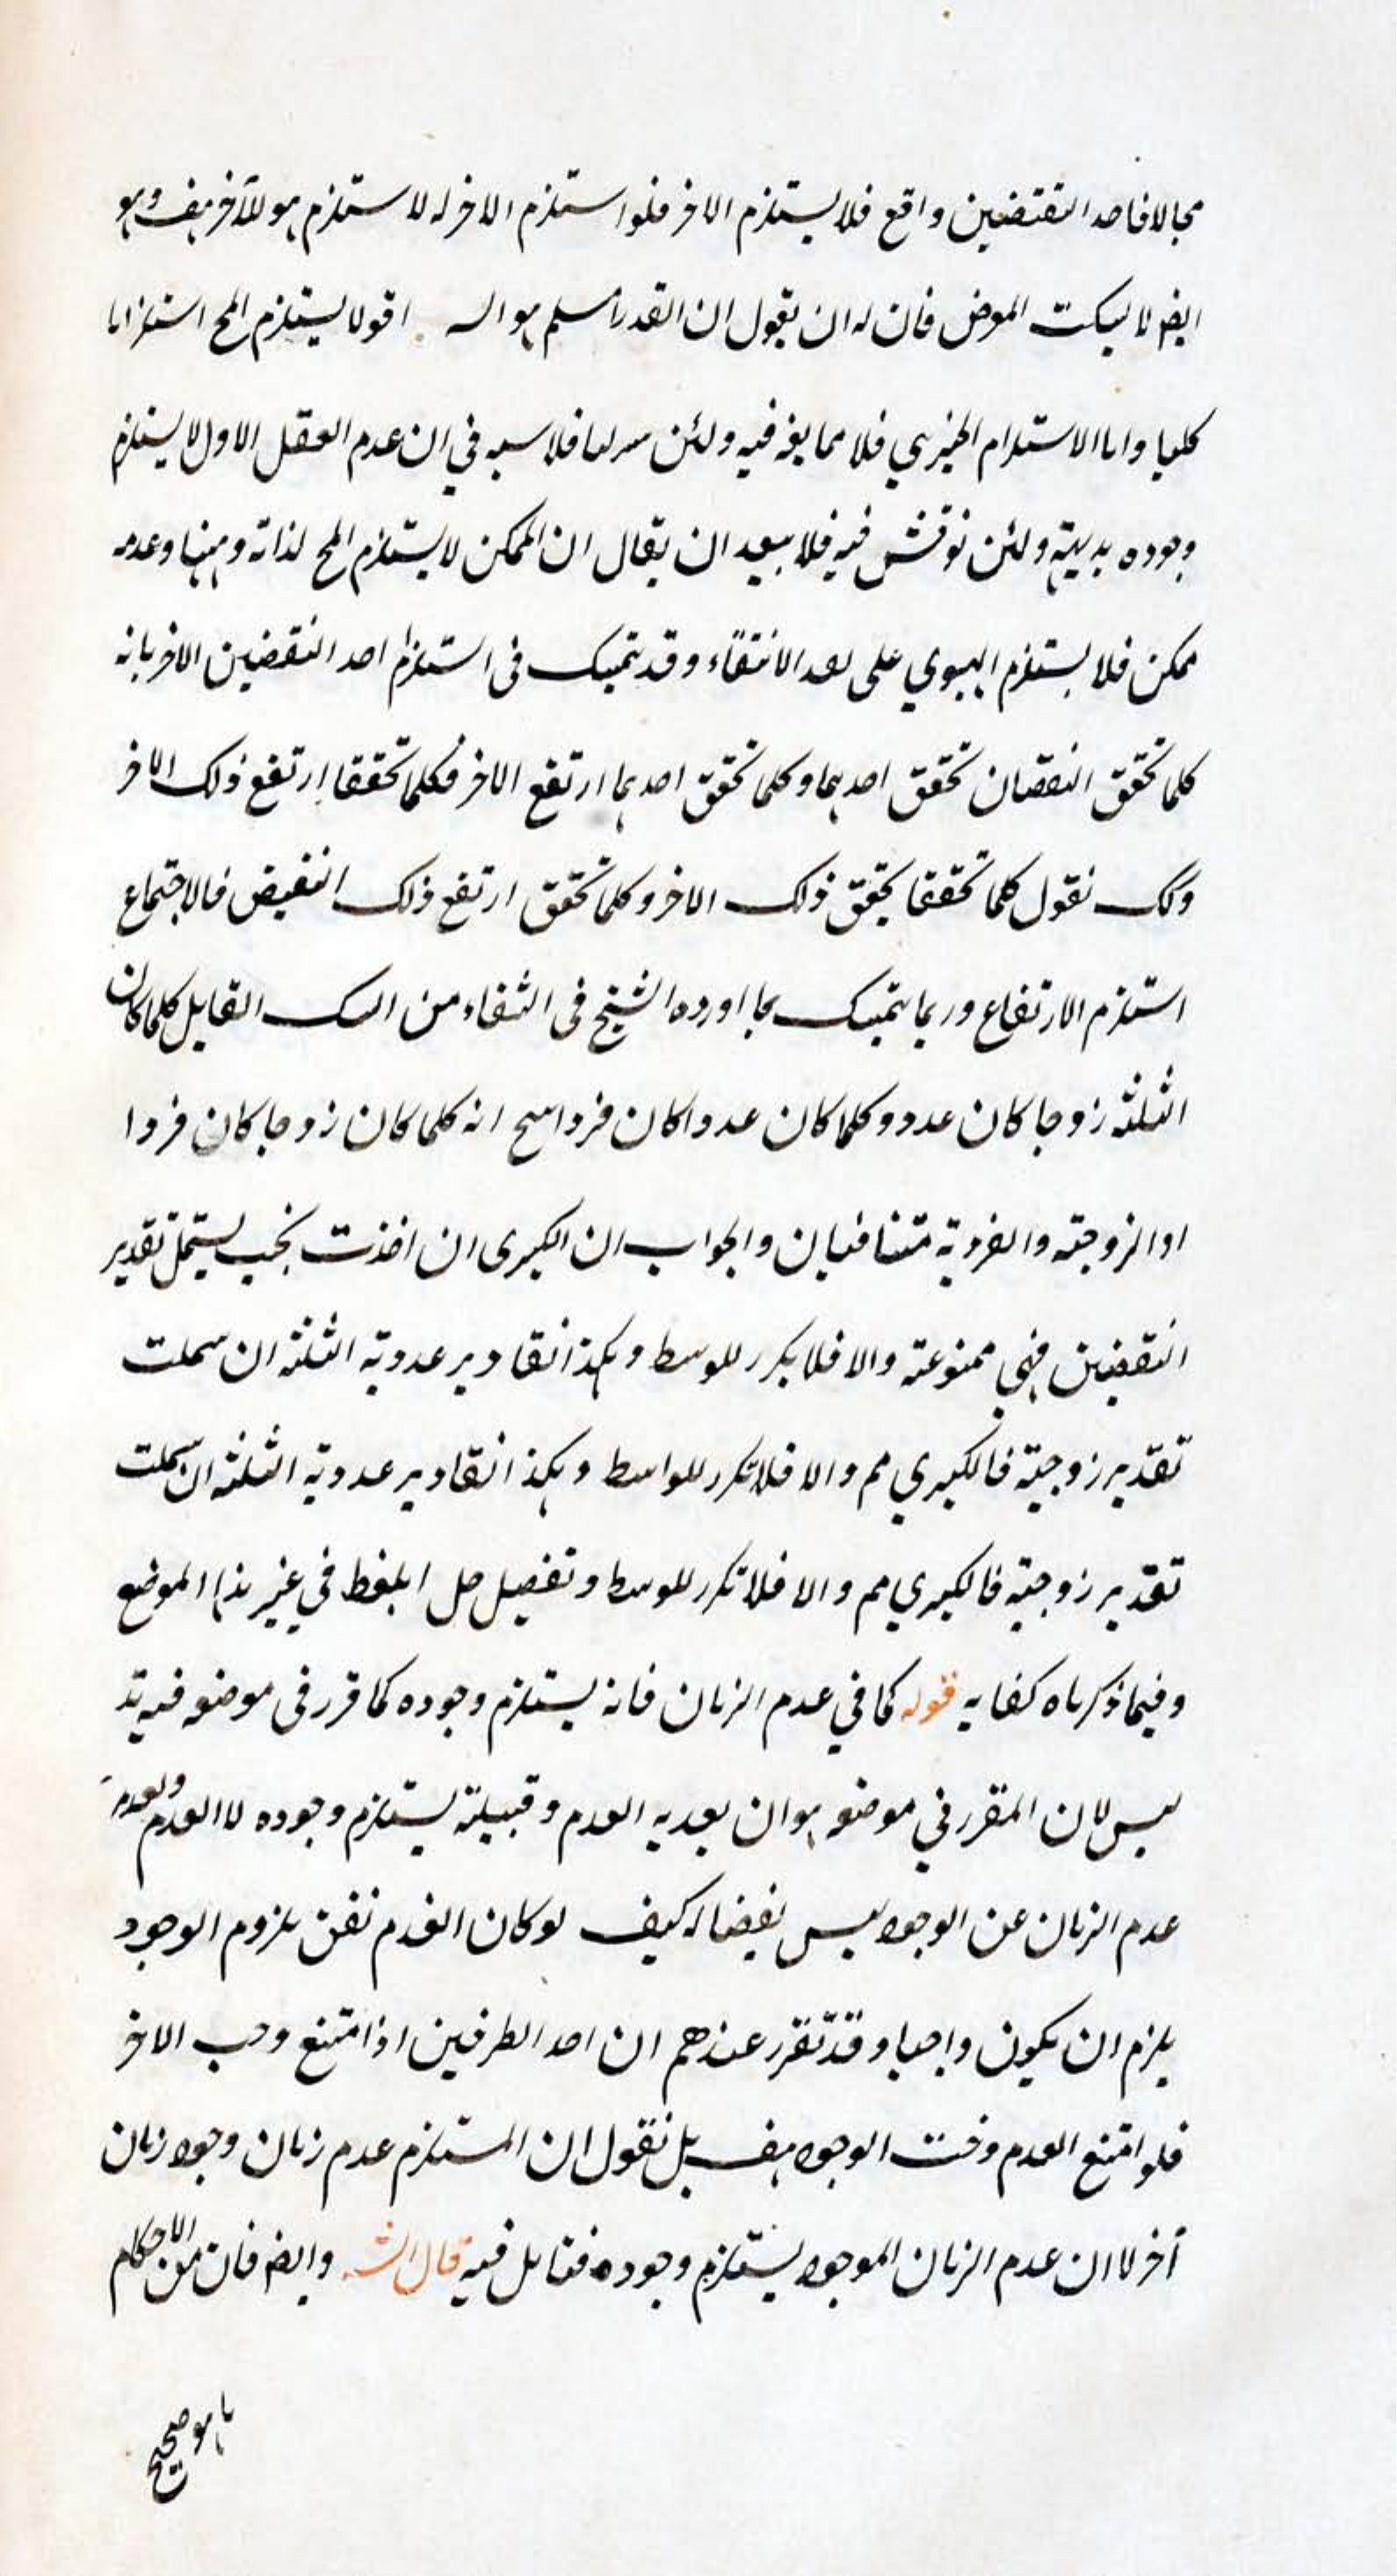 محالا فاحد النقتضين واقع فلا يستلزم الاخر فلو استلزم الاخر له لاستلزم هو للآخر هف وهو
ايضا لا يسكت فان له ان يقول ان القدر المسلم هو اقول لا يستلزم المح استلزاما
كليا واما الاستلزام الجزئي فلا مما فيه ولئن فلا في ان عدم العقل الاول لا يستلزم
وجوده بديهة ولئن نوقش فيه فلا يبعد ان يقال ان الممكن لا يستلزم المح لذاته وههنا وعدمه
ممكن فلا يستلزم على الانتفاء وقد يتمسك في استلزام احد النقضين الاخر بانه
كلما تحقق النقضان تحقق احدهما وكلما تحقق احدهما ارتفع الاخر فكلما تحققا ارتفع ذلك الاخر
وكك نقول كلما تحققا يتحقق ذلك الاخر وكلما تحقق ارتفع ذلك النقيض فالاجتماع
استلزم الارتفاع وربما يتمسك بما اورده الشيخ في الشفاء من الشك القايل كلما كان
الثلثه زوجا كان عدد وكلما كان عددا كان فردا ينتج انه كلما كان زوجا كان فردا
اوالزوجيه والفردية متنافيان والجواب ان الكبرى ان اخذت بحيث يشتمل تقدير
النقضين فهي ممنوعة والا فلا يكرر للوسط وهكذا تقادير عددية الثلثه ان شملت
تقدير زوجية فالكبري مم والا فلا تكرر للواسط وهكذا تقادير عددية الثلثه ان شملت
تقدير زوجية فالكبري مم والا فلا تكرر للوسط وتفصيل حل المغلط في غير هذا الموضع
وفيما ذكرناه كفايه قوله كما في عدم الزمان فانه يستلزم وجوده كما قرر في موضعه فيه تد
ليس لان المقرر في موضعه هو ان بعديه العدم وقبيلته يستلزم وجوده لا العدم وبعدية
عدم الزمان عن الوجود ليس نقيضا له كيف لو كان العدم نفس بلزوم الوجود
يلزم ان يكون واجبا وقد تقرر عندهم ان احد الطرفين اذا امتنع وجب الاخر
فلو امتنع العدم وجب الوجود هف بل نقول ان المستلزم عدم زمان وجود زمان
آخر لا ان عدم الزمان الموجود يستلزم وجوده فتامل فيه قال الش وايضا فان من الاحكام
ما هو صحيح